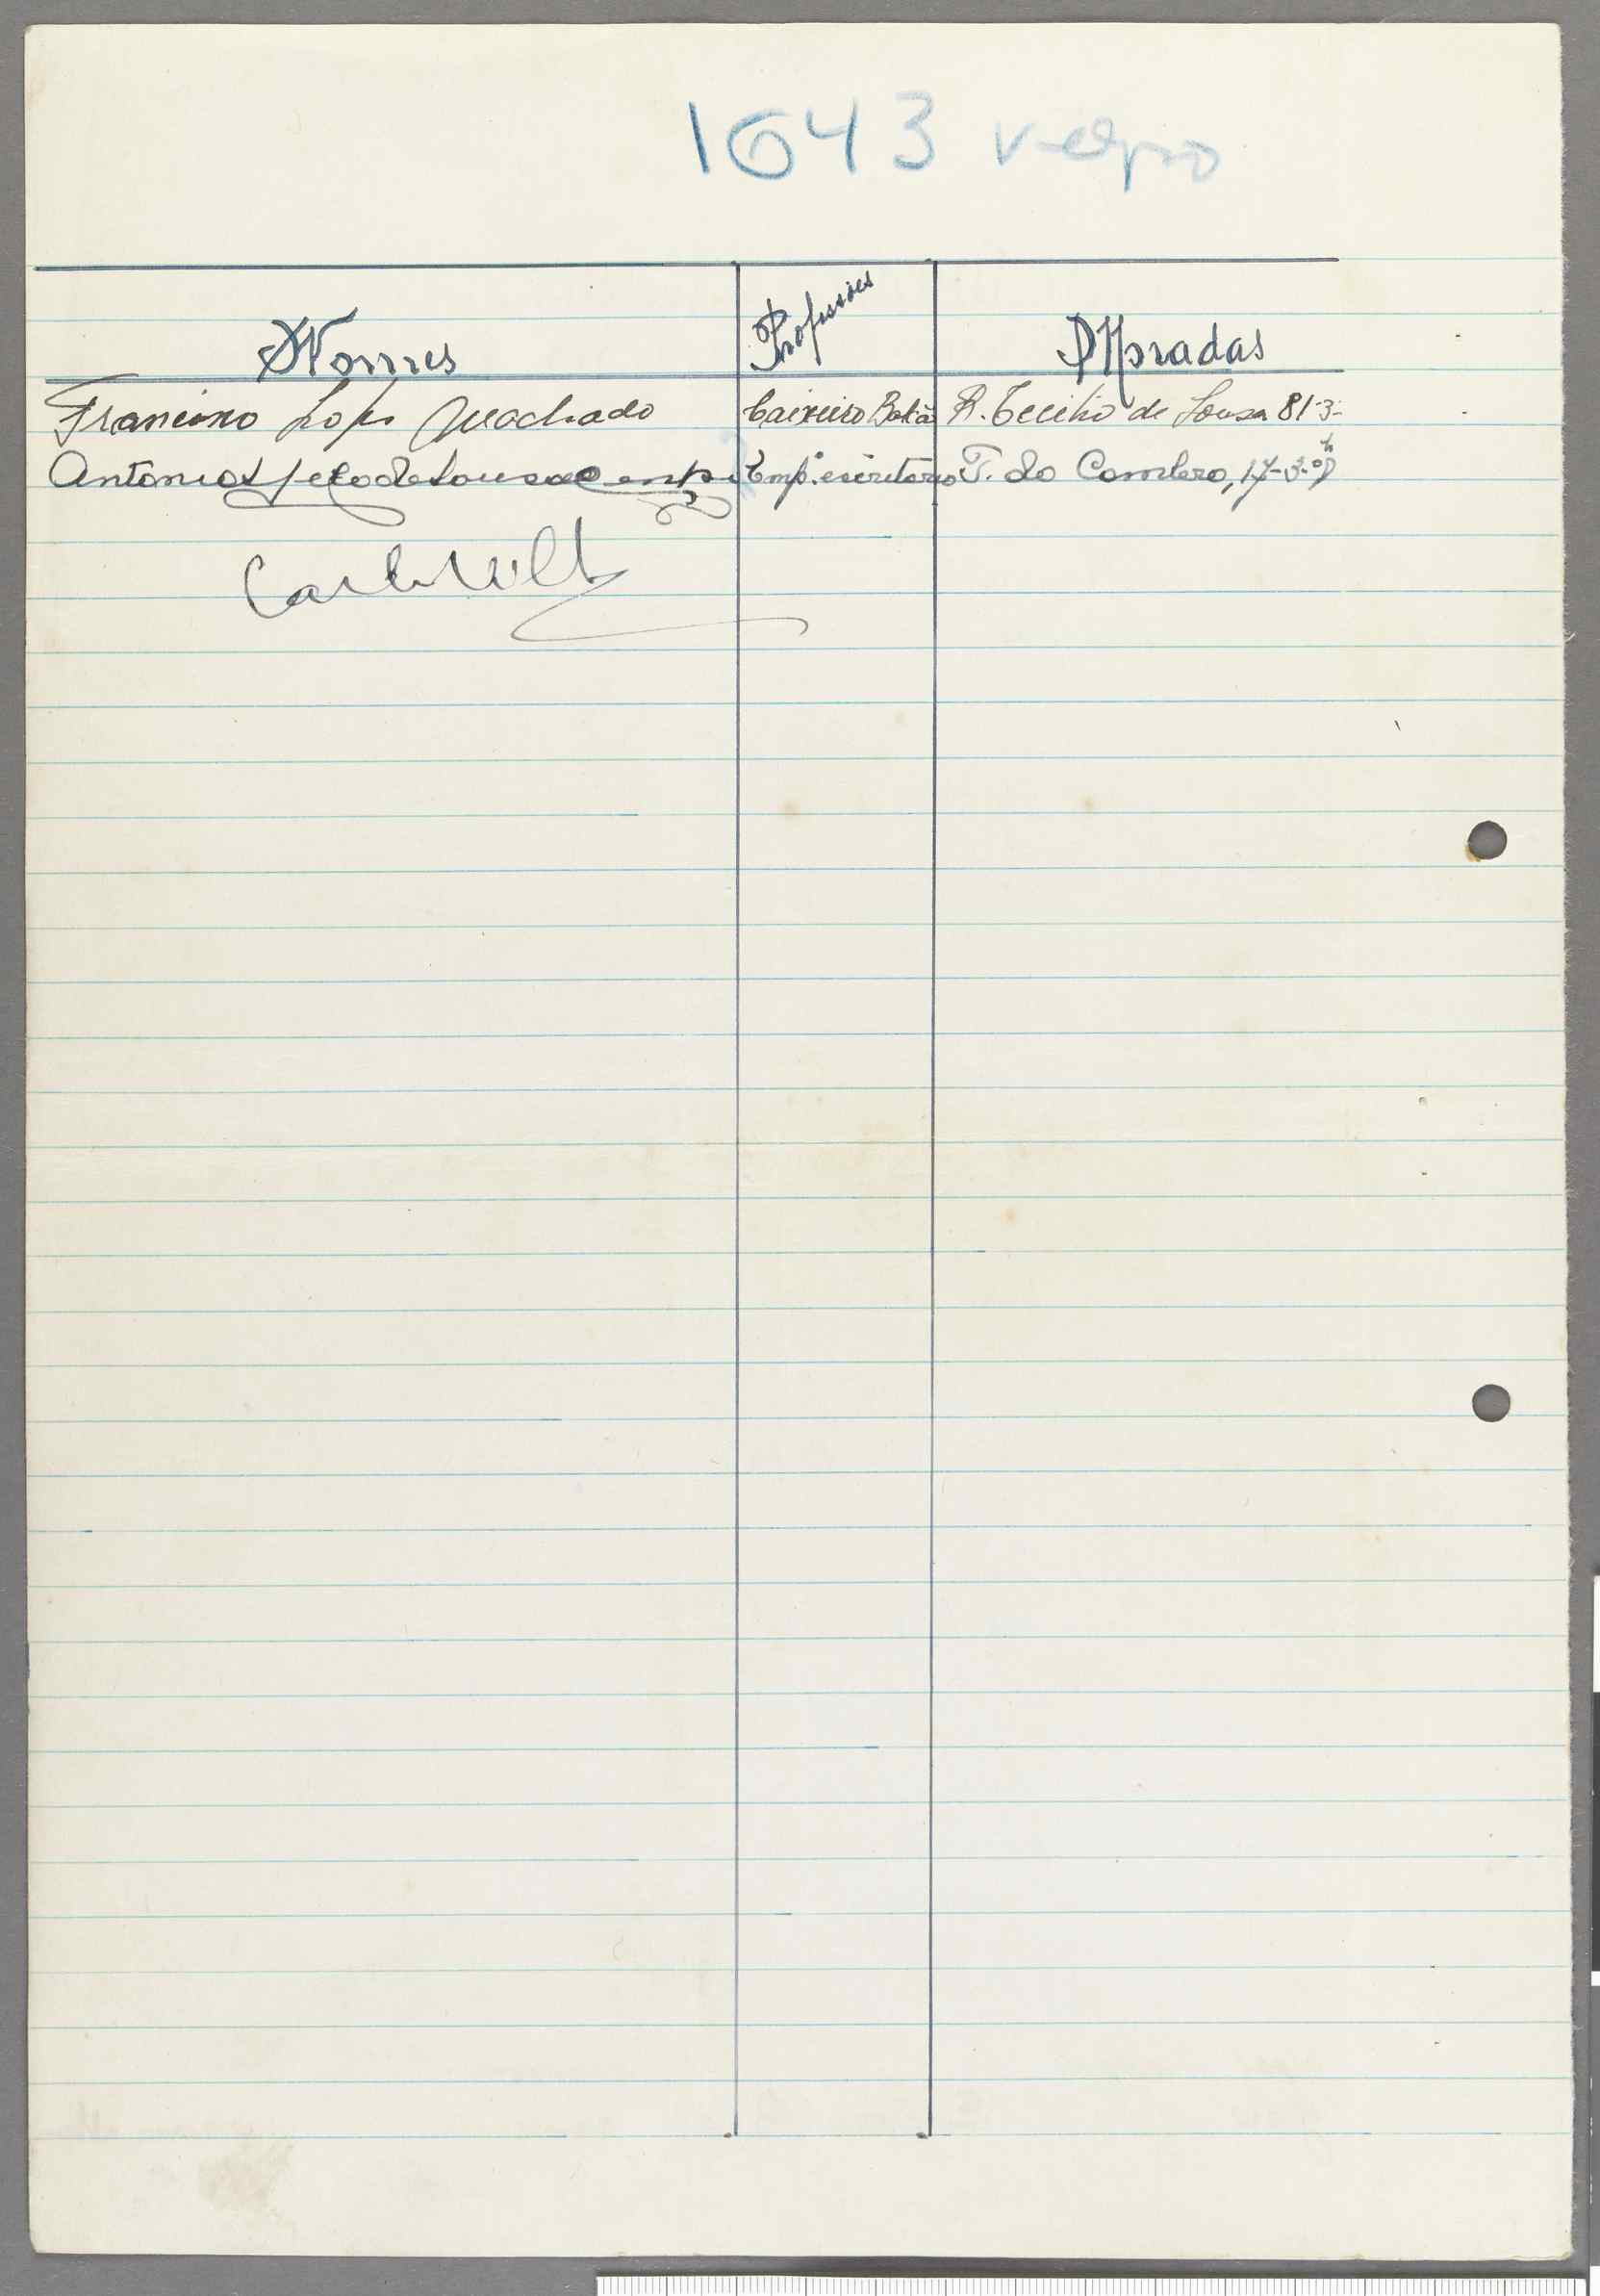 1643 verso
Nomes Profissões Moradas
Francisco Lopes Machado Caixeiro Balcão R. Cecilio de Sousa 81-3-
Antonio de Sousa Emp. escritorio T. do Combro, 17-3-º D
Carlos